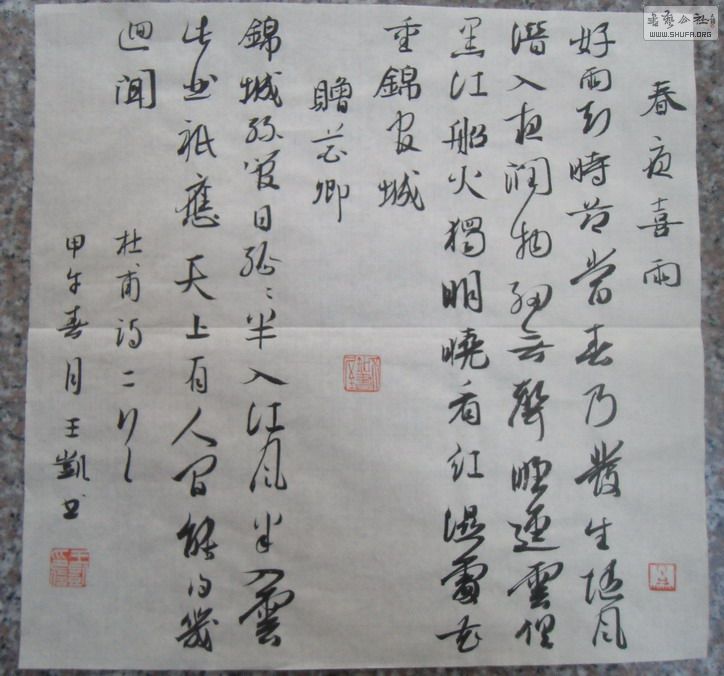 書藝公社
WWW.SHUFA.ORG
春夜喜雨
好雨知時節當春乃發生隨風
潛入夜潤物細無聲野逕雲俱
黑江船火獨明曉看紅濕處花
重錦官城
贈花卿
錦城絲管日紛〻半入江風半入雲
此曲祇應天上有人間能得幾
迴聞
杜甫詩二
甲午春月王凱書